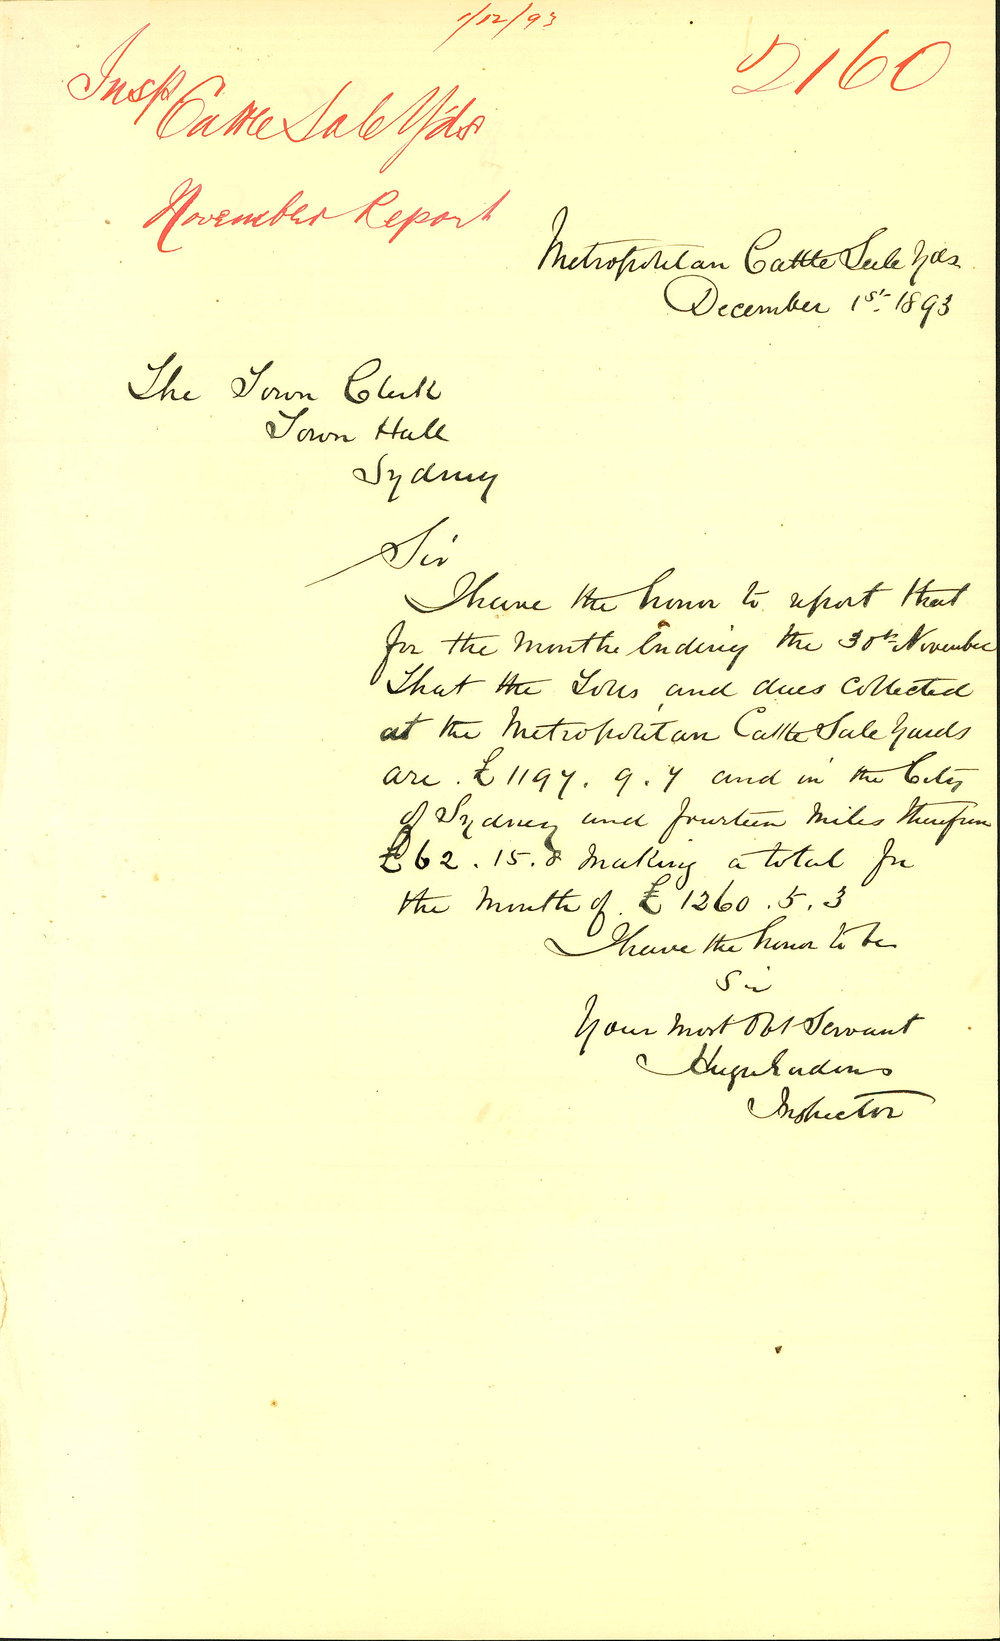 1/12/93
2160
Insp
Cattle Sale Yds
November Report
Metropolitan Cattle Sale Yds
December 1st. 1893
The Town Clerk
Town Hall
Sydney
Sir
I have the honor to report that
for the month Ending the 30th November
That the Tolls and dues Collected
at the Metropolitan Cattle Sale Yards
are . £ 1197 . 9 . 7 and in the City
of Sydney and fourteen Miles therefrom
£62 . 15 . 8 Making a total for
the Month of £ 1260 . 5 . 3
I have the honor to be
Sir
Your Most Obt Servant
Hugh
Inspector